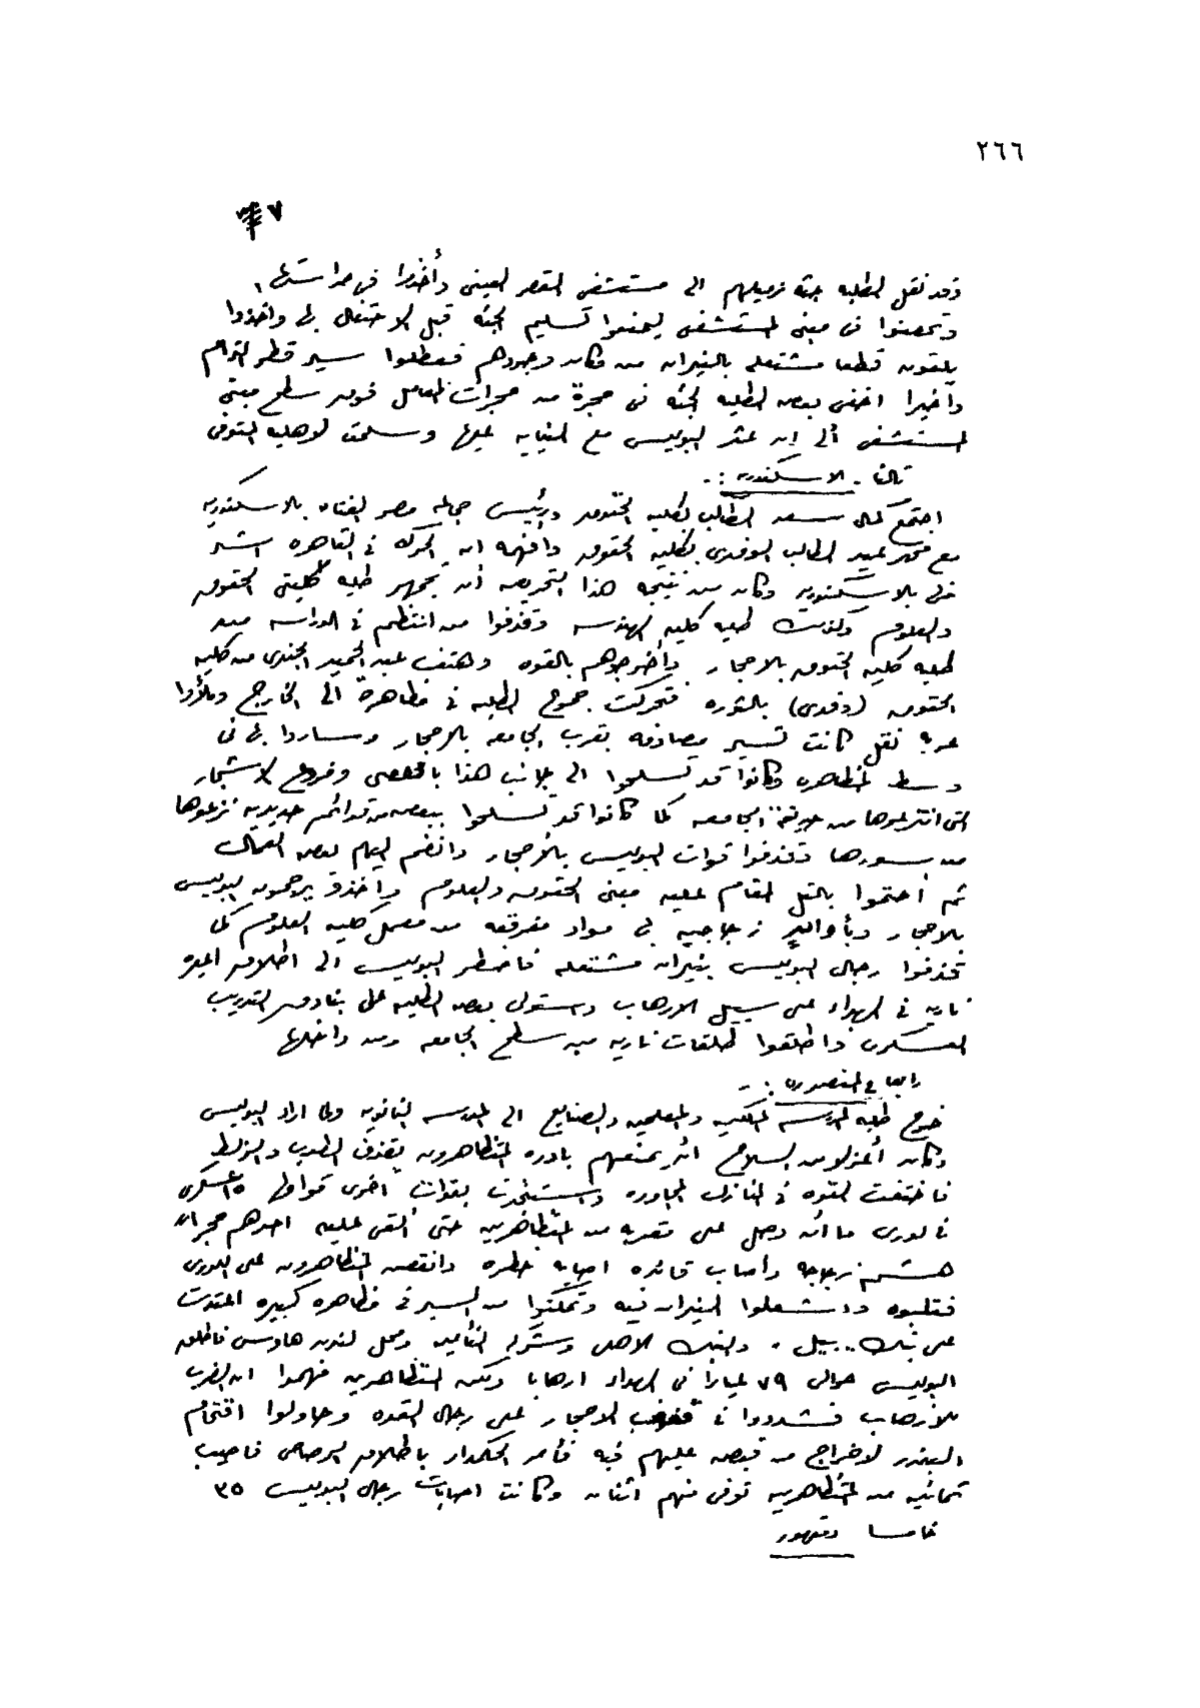 ٢٦٦
٧
وقد نقل الطلبه جثة زميلهم الى مستشفى القصر العينى وأخذوا فى حراستها
وتحصنوا فى مبنى المستشفى ليمنعوا تسليم الجثه قبل الاحتفال بها واخذوا
يلقون قطعا مشتعله بالنيران من مكان وجودهم فعطلوا سير قطر الترام
وأخيرا اخفى بعض الطلبه الجثه فى حجرة من حجرات المعامل فوق سطح مبنى
المستشفى ألى ان عثر البوليس مع النيابه عليها وسلمت لاهليه المتوفى
ثالثا - الاسكندريه :-
اجتمع كمال سعد الطالب بكليه الحقوق ورئيس جماعه مصر الفتاه بالاسكندريه
مع عبيد الطالب الوفدى بكليه الحقوق وافهمه ان الحركه فى القاهره اشد
منها بالاسكندريه وكان من نتيجه هذا التحريض أن تجمهر طلبه كليتى الحقوق
والعلوم وكذلك طلبه كليه الهندسه وقذفوا من انتظم فى الدراسه من
طلبه كليه الحقوق بالاحجار وأخرجوهم بالقوه وهتف عبد الحميد الجندى من كليه
الحقوق (وفدى) بالثوره فتحركت جموع الطلبه فى مظاهرة الى الخارج
عربه نقل كانت تسير مصادفه بقرب الجامعه بالاحجار وساروا بها فى
وسط المظاهره وكانوا قد تسلحوا الى جانب هذا بالعصى وفروع الاشجار
التى انتزعوها من حديقة الجامعه كما كانوا قد تسلحوا ببعض قوائم حديديه نزعوها
من سورها وقذفوا قوات البوليس بالأحجار وانضم اليهم بعض العمال
ثم أحتموا بالتل المقام عليه مبنى الحقوق والعلوم وأخذوا يرجمون البوليس
بالاحجار وبأوانى زجاجيه بها مواد مفرقعه من معمل كليه العلوم كما
قذفوا رجال البوليس بنيران مشتعله فاضطر البوليس الى اطلاق اعيره
ناريه فى الهواء على سبيل الارهاب واستولى بعض الطلبه على بنادق التدريب
العسكرى واطلقوا طلقات ناريه من سطح الجامعه ومن داخلها
رابعا المنصوره :-
خرج طلبه المدرسه الملكيه والمعلمين والصنايع الى المدرسه الثانويه ولما اراد البوليس
وكان أعزلا من السلاح أن يمنعهم بادره المتظاهرون بقذف الطوب والزلط
فاختفت القوه فى المنازل المجاوره واستنجدت بقوات أخرى قوامها ١٥ عسكرى
فالورى ما أن وصل على مقربه من المتظاهرين حتى ألقى عليه احدهم حجر
هشم زجاجه وأصاب قائده اصابه خطره وانقض المتظاهرون على اللورى
فقلبوه واشعلوا النيران فيه وتمكنوا من السير فى مظاهره كبيره اعتدت
على بنك .. بيل . والبنك الاهلى وشركه التأمين ومحل لندن هاوس فاطلق
البوليس حوالى ٧٩ عيارا فى الهواء ارهابا ولكن المتظاهرين فهموا ان الضرب
للأرهاب فشددوا فى قذف الاحجار على رجال القوه وحاولوا اقتحام
البندر لاخراج من قبض عليهم فيه فأمر الحكمدار باطلاق الرصاص فاصيب
ثمانيه من المتظاهرين توفى منهم اثنان وكانت اصابات رجال البوليس ٣٥
خامسا دمنهور